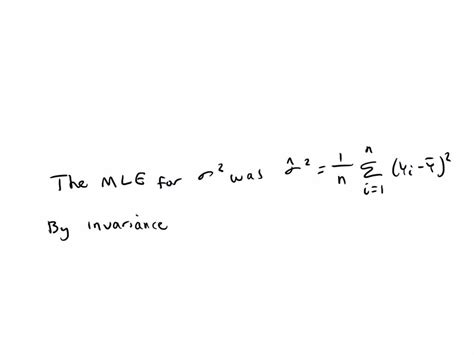 The MLE for σ² was σ̂² = 1/n Σⁿᵢ₌₁ (Yᵢ-Ȳ)²
By invariance